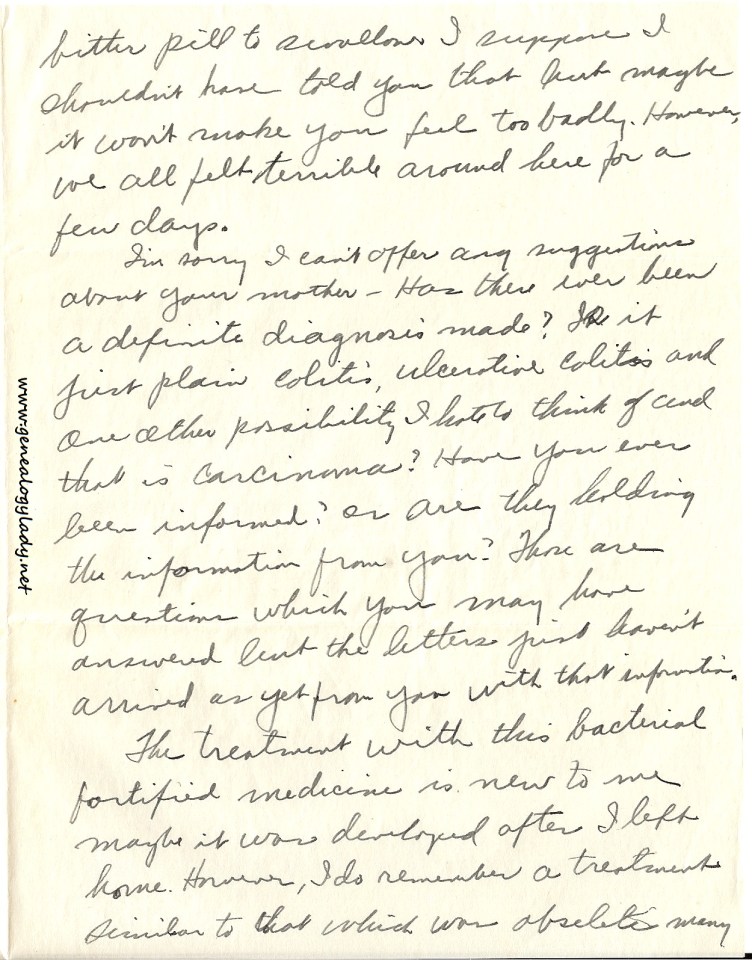 bitter pill to swallow I suppose I
shouldn't have told you that but maybe
it won't make you feel too badly. However,
we all felt terrible around here for a
few days.
I'm sorry I can't offer any suggestions
about your mother – Has there ever been
a definite diagnosis made? Is it
just plain colitis, ulcerative colitis and
one other possibility I hate to think of and
that is carcinoma? Have you ever
been informed? or are they holding
the information from you? Those are
questions which you may have
answered but the letters just haven't
arrived as yet from you with that information.
The treatment with this bacterial
fortified medicine is new to me
maybe it was developed after I left
home. However, I do remember a treatment
similar to that which was obselete many
www.genealogylady.net